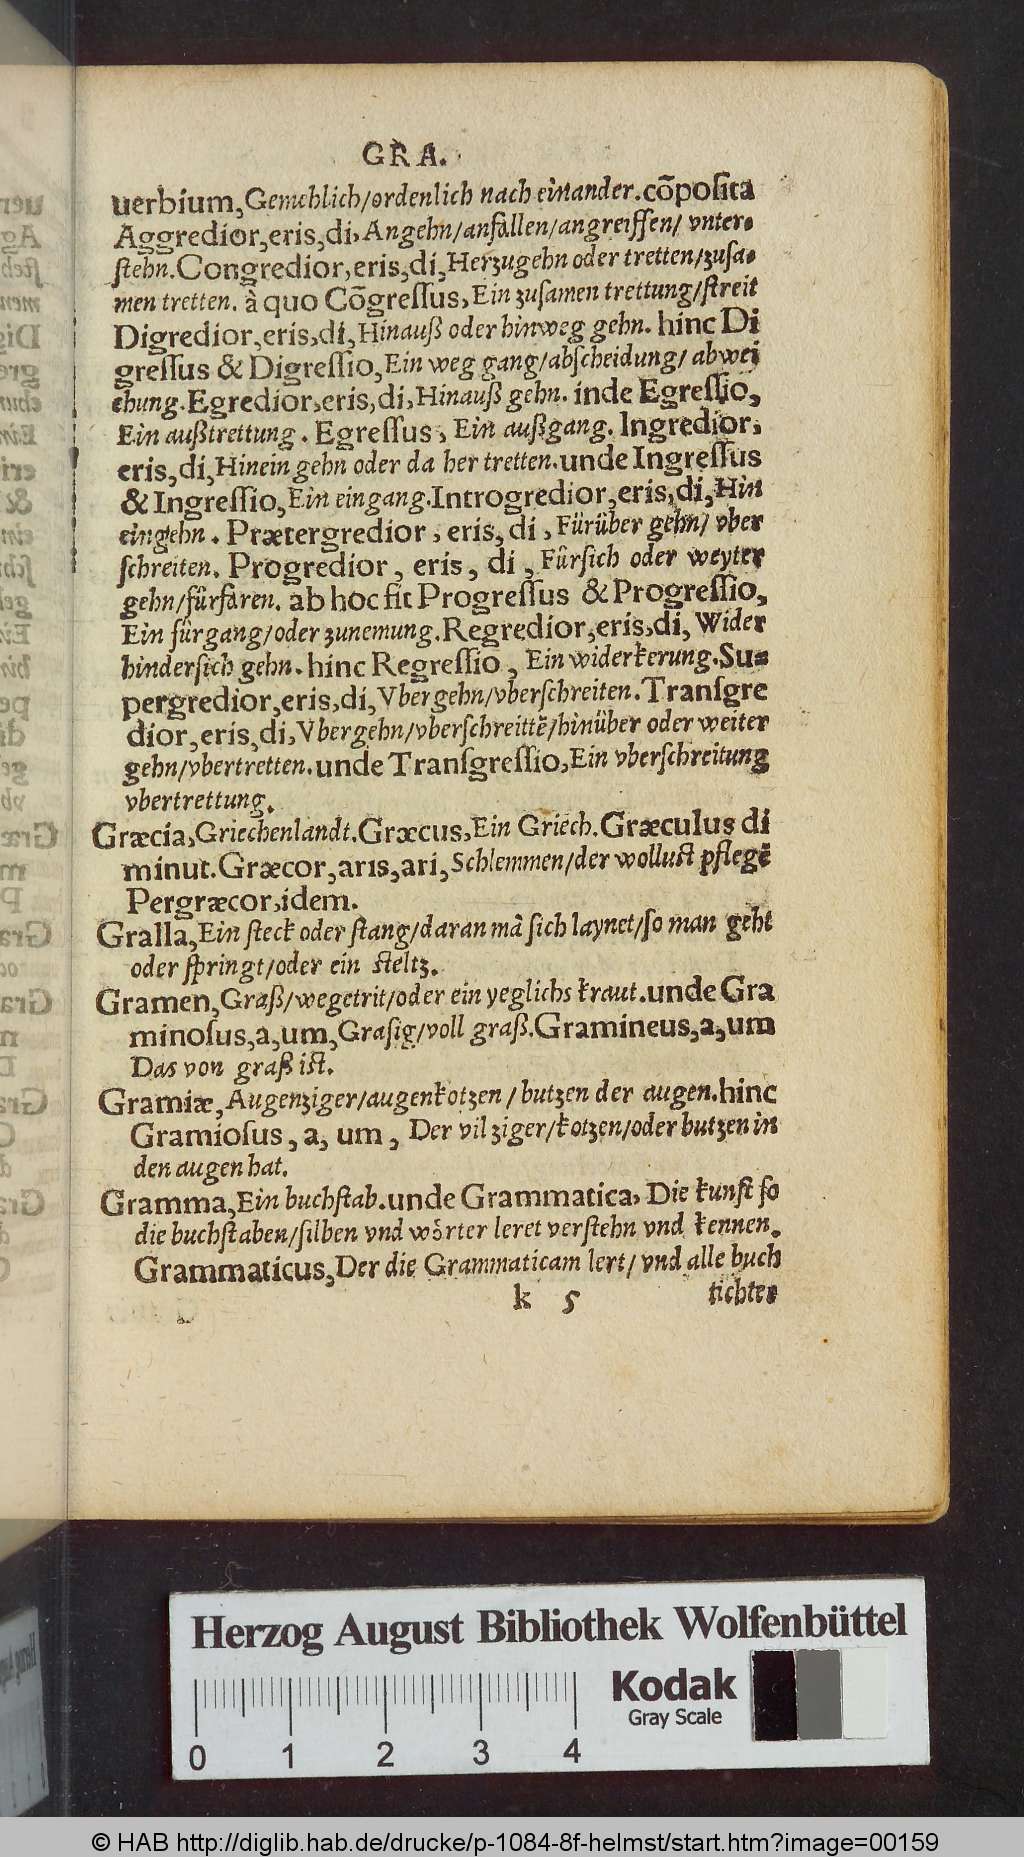 GRA.
uerbium, Gemehlich/ordenlich nach einander. cõposita
Aggredior, eris, di, Angehn/anfallen/angreiffen/ vnter⸗
stehn. Congredior, eris, di, Herzugehn oder tretten/zusa⸗
men tretten. à quo Cõgreſſus, Ein zusamen trettung/streit
Digredior, eris, di, Hinauß oder hinweg gehn. hinc Di
greſſus & Digreſſio, Ein weg gang/abscheidung/ abwei
chung. Egredior, eris, di, Hinauß gehn. inde Egreſſio,
Ein außtrettung. Egreſſus, Ein außgang. Ingredior,
eris, di, Hinein gehn oder da her tretten. unde Ingreſſus
& Ingreſſio, Ein eingang. Introgredior, eris, di, Hin
eingehn. Prætergredior, eris, di, Fürüber gehn/ vber
schreiten. Progredior, eris, di, Fürsich oder weyter
gehn/fürfaren. ab hoc fit Progreſſus & Progreſſio,
Ein fürgang/oder zunemung. Regredior, eris, di, Wider
hindersich gehn. hinc Regreſſio, Ein widerkerung. Su⸗
pergredior, eris, di, Vbergehn/vberschreiten. Tranſgre
dior, eris, di, Vbergehn/vberschreittẽ/hinüber oder weiter
gehn/vbertretten. unde Tranſgreſſio, Ein vberschreitung
vbertrettung.
Græcia, Griechenlandt. Græcus, Ein Griech. Græculus di
minut. Græcor, aris, ari, Schlemmen/der wollust pflegẽ
Pergræcor, idem.
Gralla, Ein steck oder stang/daran mã sich laynet/so man geht
oder springt/oder ein steltz.
Gramen, Graß/wegetrit/oder ein yeglichs kraut. unde Gra
minoſus, a, um, Grasig/voll graß. Gramineus, a, um
Das von graß ist.
Gramiæ, Augenziger/augenkotzen/ butzen der augen. hinc
Gramioſus, a, um, Der vil ziger/kotzen/oder butzen in
den augen hat.
Gramma, Ein buchstab. unde Grammatica, Die kunst so
die buchstaben/silben vnd wörter leret verstehn vnd kennen.
Grammaticus, Der die Grammaticam lert/ vnd alle buch
k 5 tichter
Herzog August Bibliothek Wolfenbüttel
Kodak
Gray Scale
0 1 2 3 4
© HAB http://diglib.hab.de/drucke/p-1084-8f-helmst/start.htm?image=00159